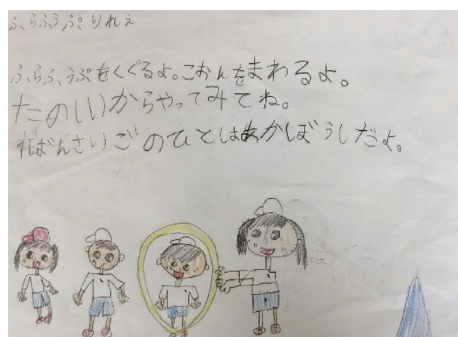 ふらふうぷりれえ
ふらふうぷをくぐるよ。こおんをまわるよ。
たのしいからやってみてね。
いちばんさいごのひとはあかぼうしだよ。